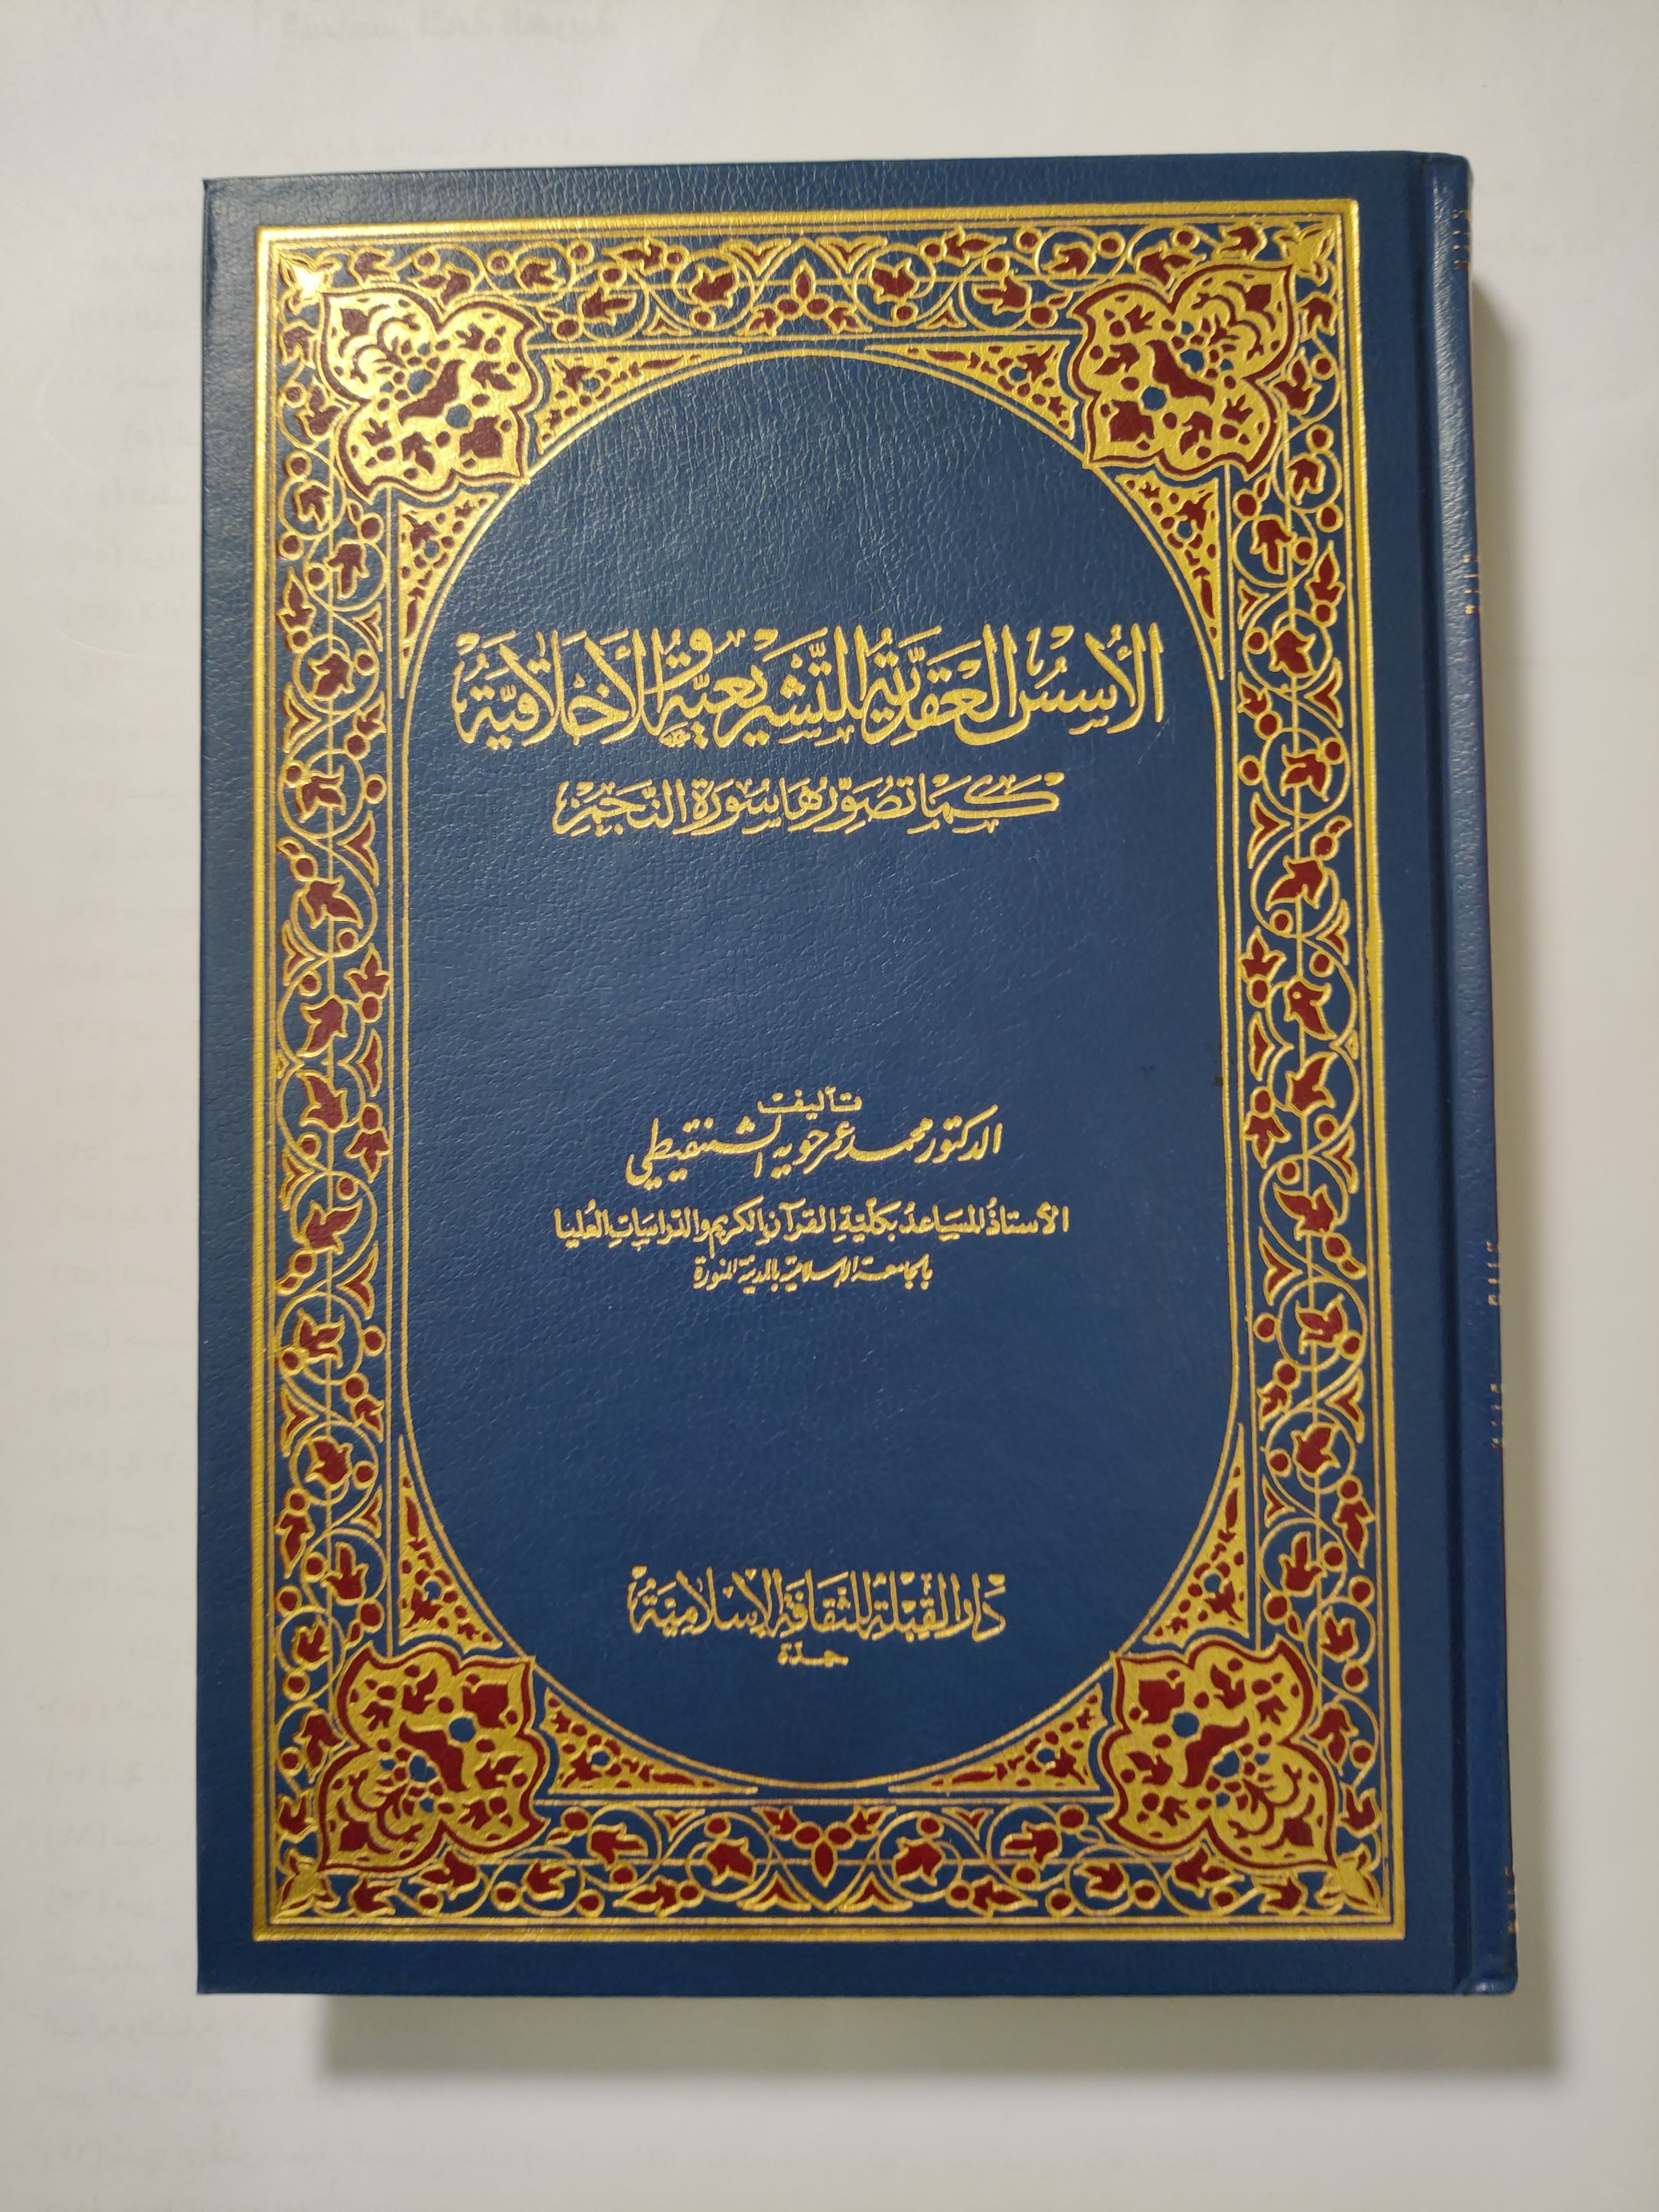 الأُسُسُ العَقَدِيَّةُ للتَّشْرِيعِيَّةِ وَالأَخْلَاقِيَّةِ
كَمَا تُصَوِّرُهَا سُورَةُ النَّجْمِ
تأليف
الدكتور محمد عمر حويه الشنقيطي
الأستاذُ المسَاعدُ بكليّةِ القرآنِ الكريم والدّراسَاتِ العُليا
بالجامعة الإسلاميّة بالمدينة المنورة
دَارُ القِبْلَةِ للثَّقَافَةِ الإِسْلَامِيَّةِ
جدة